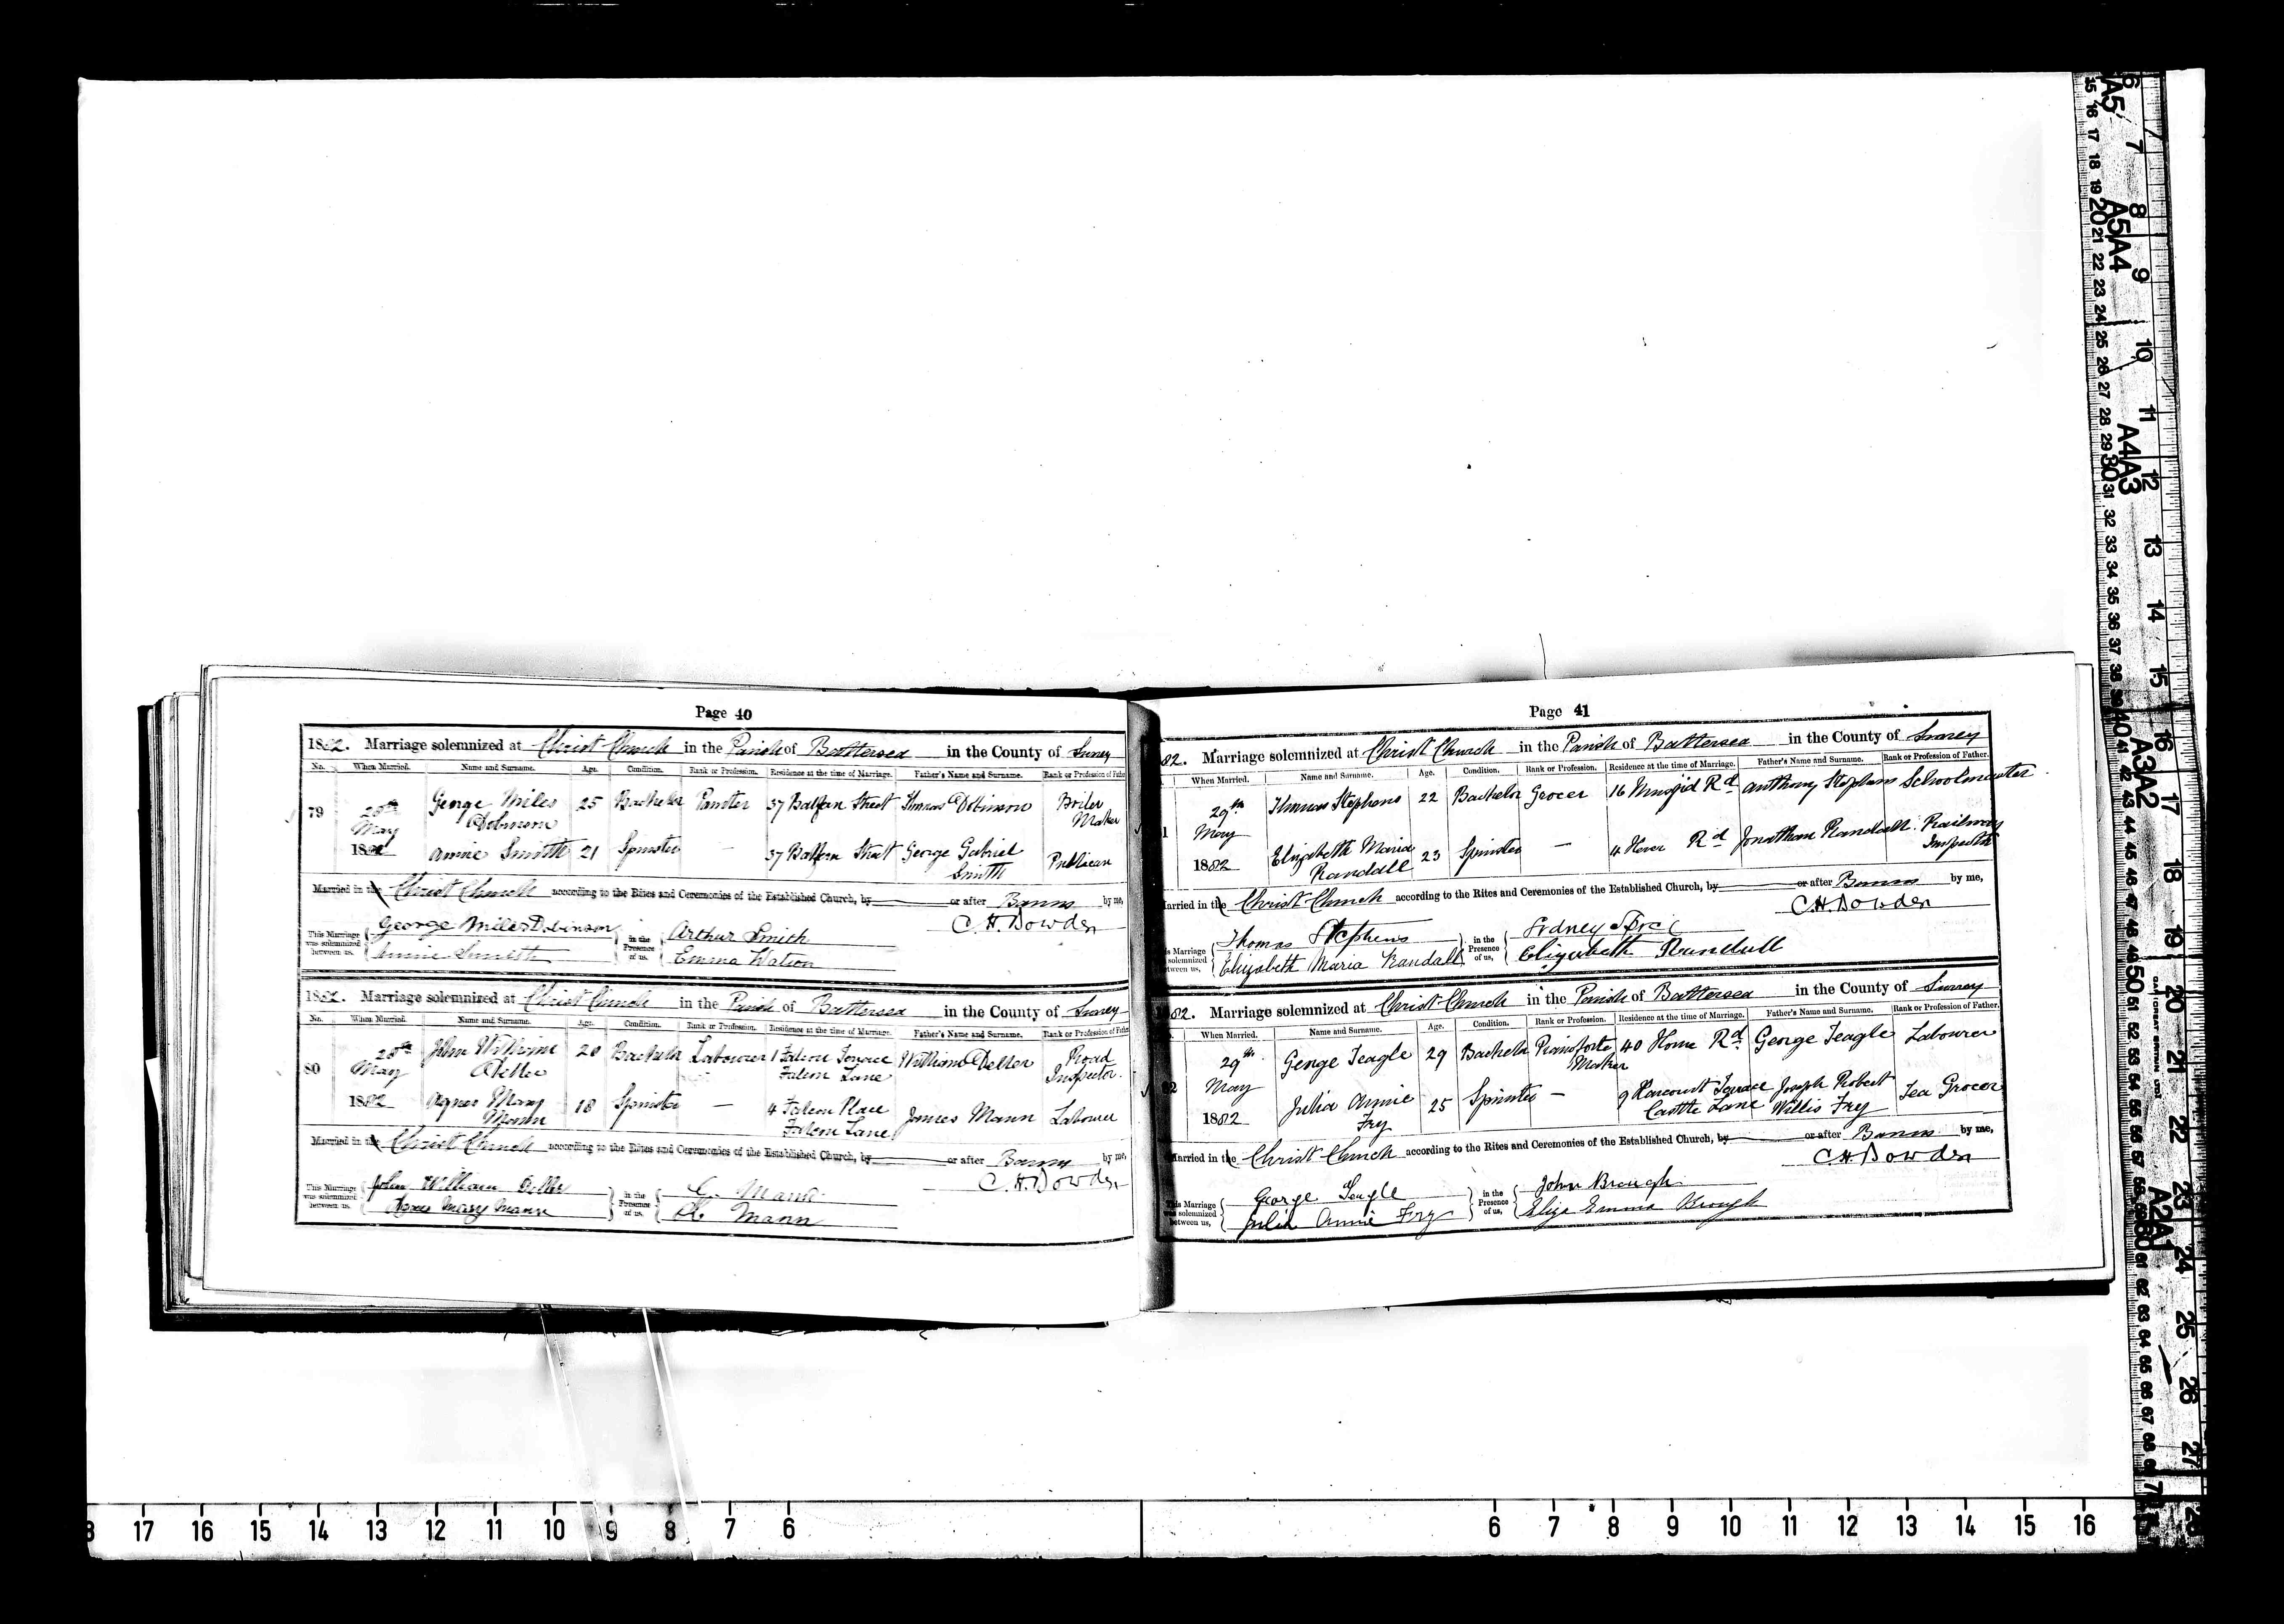 Page 40
1882. Marriage solemnized at Christ Church in the Parish of Battersea in the County of Surrey
No. When Married. Name and Surname. Age. Condition. Rank or Profession. Residence at the time of Marriage. Father's Name and Surname. Rank or Profession of Father
79 28th May 1882 George Miles Dobinson 25 Bachelor Painter 37 Balfern Street Thomas Dobinson Boiler Maker
Annie Smith 21 Spinster — 37 Balfern Street George Gabriel Smith Publican
Married in the Christ Church according to the Rites and Ceremonies of the Established Church, by or after Banns by me,
C. H. Dowden
This Marriage was solemnized between us, George Miles Dobinson in the Presence of us, Arthur Smith
Annie Smith Emma Watson
1882. Marriage solemnized at Christ Church in the Parish of Battersea in the County of Surrey
No. When Married. Name and Surname. Age. Condition. Rank or Profession. Residence at the time of Marriage. Father's Name and Surname. Rank or Profession of Father
80 28th May 1882 John William Deller 20 Bachelor Labourer 1 Falcon Terrace Falcon Lane William Deller Road Inspector.
Agnes Mary Mann 18 Spinster — 4 Falcon Place Falcon Lane James Mann Labourer
Married in the Christ Church according to the Rites and Ceremonies of the Established Church, by or after Banns by me,
C. H. Dowden
This Marriage was solemnized between us, John William Deller in the Presence of us, Mann
Agnes Mary Mann Mann
Page 41
82. Marriage solemnized at Christ Church in the Parish of Battersea in the County of Surrey
When Married. Name and Surname. Age. Condition. Rank or Profession. Residence at the time of Marriage. Father's Name and Surname. Rank or Profession of Father.
1 29th May 1882 Thomas Stephens 22 Bachelor Grocer 16 Rd Anthony Stephens Schoolmaster
Elizabeth Maria Randall 23 Spinster — 4 Rd Jonathan Randall. Railway Inspector
Married in the Christ Church according to the Rites and Ceremonies of the Established Church, by or after Banns by me,
C. H. Dowden
is Marriage solemnized between us, Thomas Stephens in the Presence of us, Sydney
Elizabeth Maria Randall Elizabeth Randall
82. Marriage solemnized at Christ Church in the Parish of Battersea in the County of Surrey
When Married. Name and Surname. Age. Condition. Rank or Profession. Residence at the time of Marriage. Father's Name and Surname. Rank or Profession of Father.
82 29th May 1882 George Teagle 29 Bachelor Pianoforte Maker 40 Home Rd. George Teagle Labourer
Julia Annie Fry 25 Spinster — 9 Harcourt Terrace Castle Lane Joseph Robert Willis Fry Tea Grocer
Married in the Christ Church according to the Rites and Ceremonies of the Established Church, by or after Banns by me,
C. H. Dowden
This Marriage was solemnized between us, George Teagle in the Presence of us, John Brough
Julia Annie Fry Eliza Emma Brough